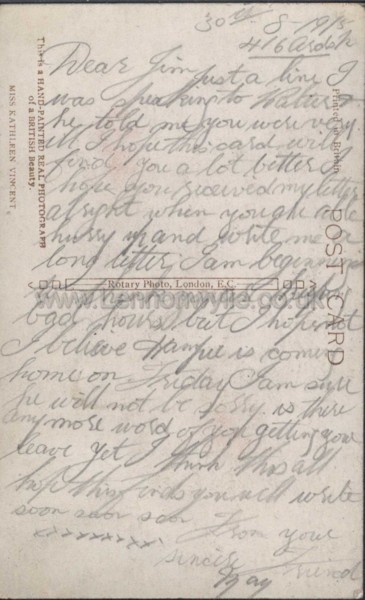 30th-8-1915
416 Ardsk
Dear Jim just a line I
was speaking to
he told me you were very
ill I hope this card will
find you a lot better I
hope you received my letter
alright when you are able
hurry up and write me a
long letter I am beginning
bad hours but I hope not
I believe is coming
home on Friday I am sure
he will not be sorry is there
anymore word of you getting your
leave yet I think this all
hope this finds you well write
soon soon soon From your
xxxxxxxxxx sincere Friend
May
This is a HAND-PAINTED REAL PHOTOGRAPH
of a BRITISH Beauty.
MISS KATHLEEN VINCENT.
Printed in Britain
POST CARD
Rotary Photo, London, E.C.